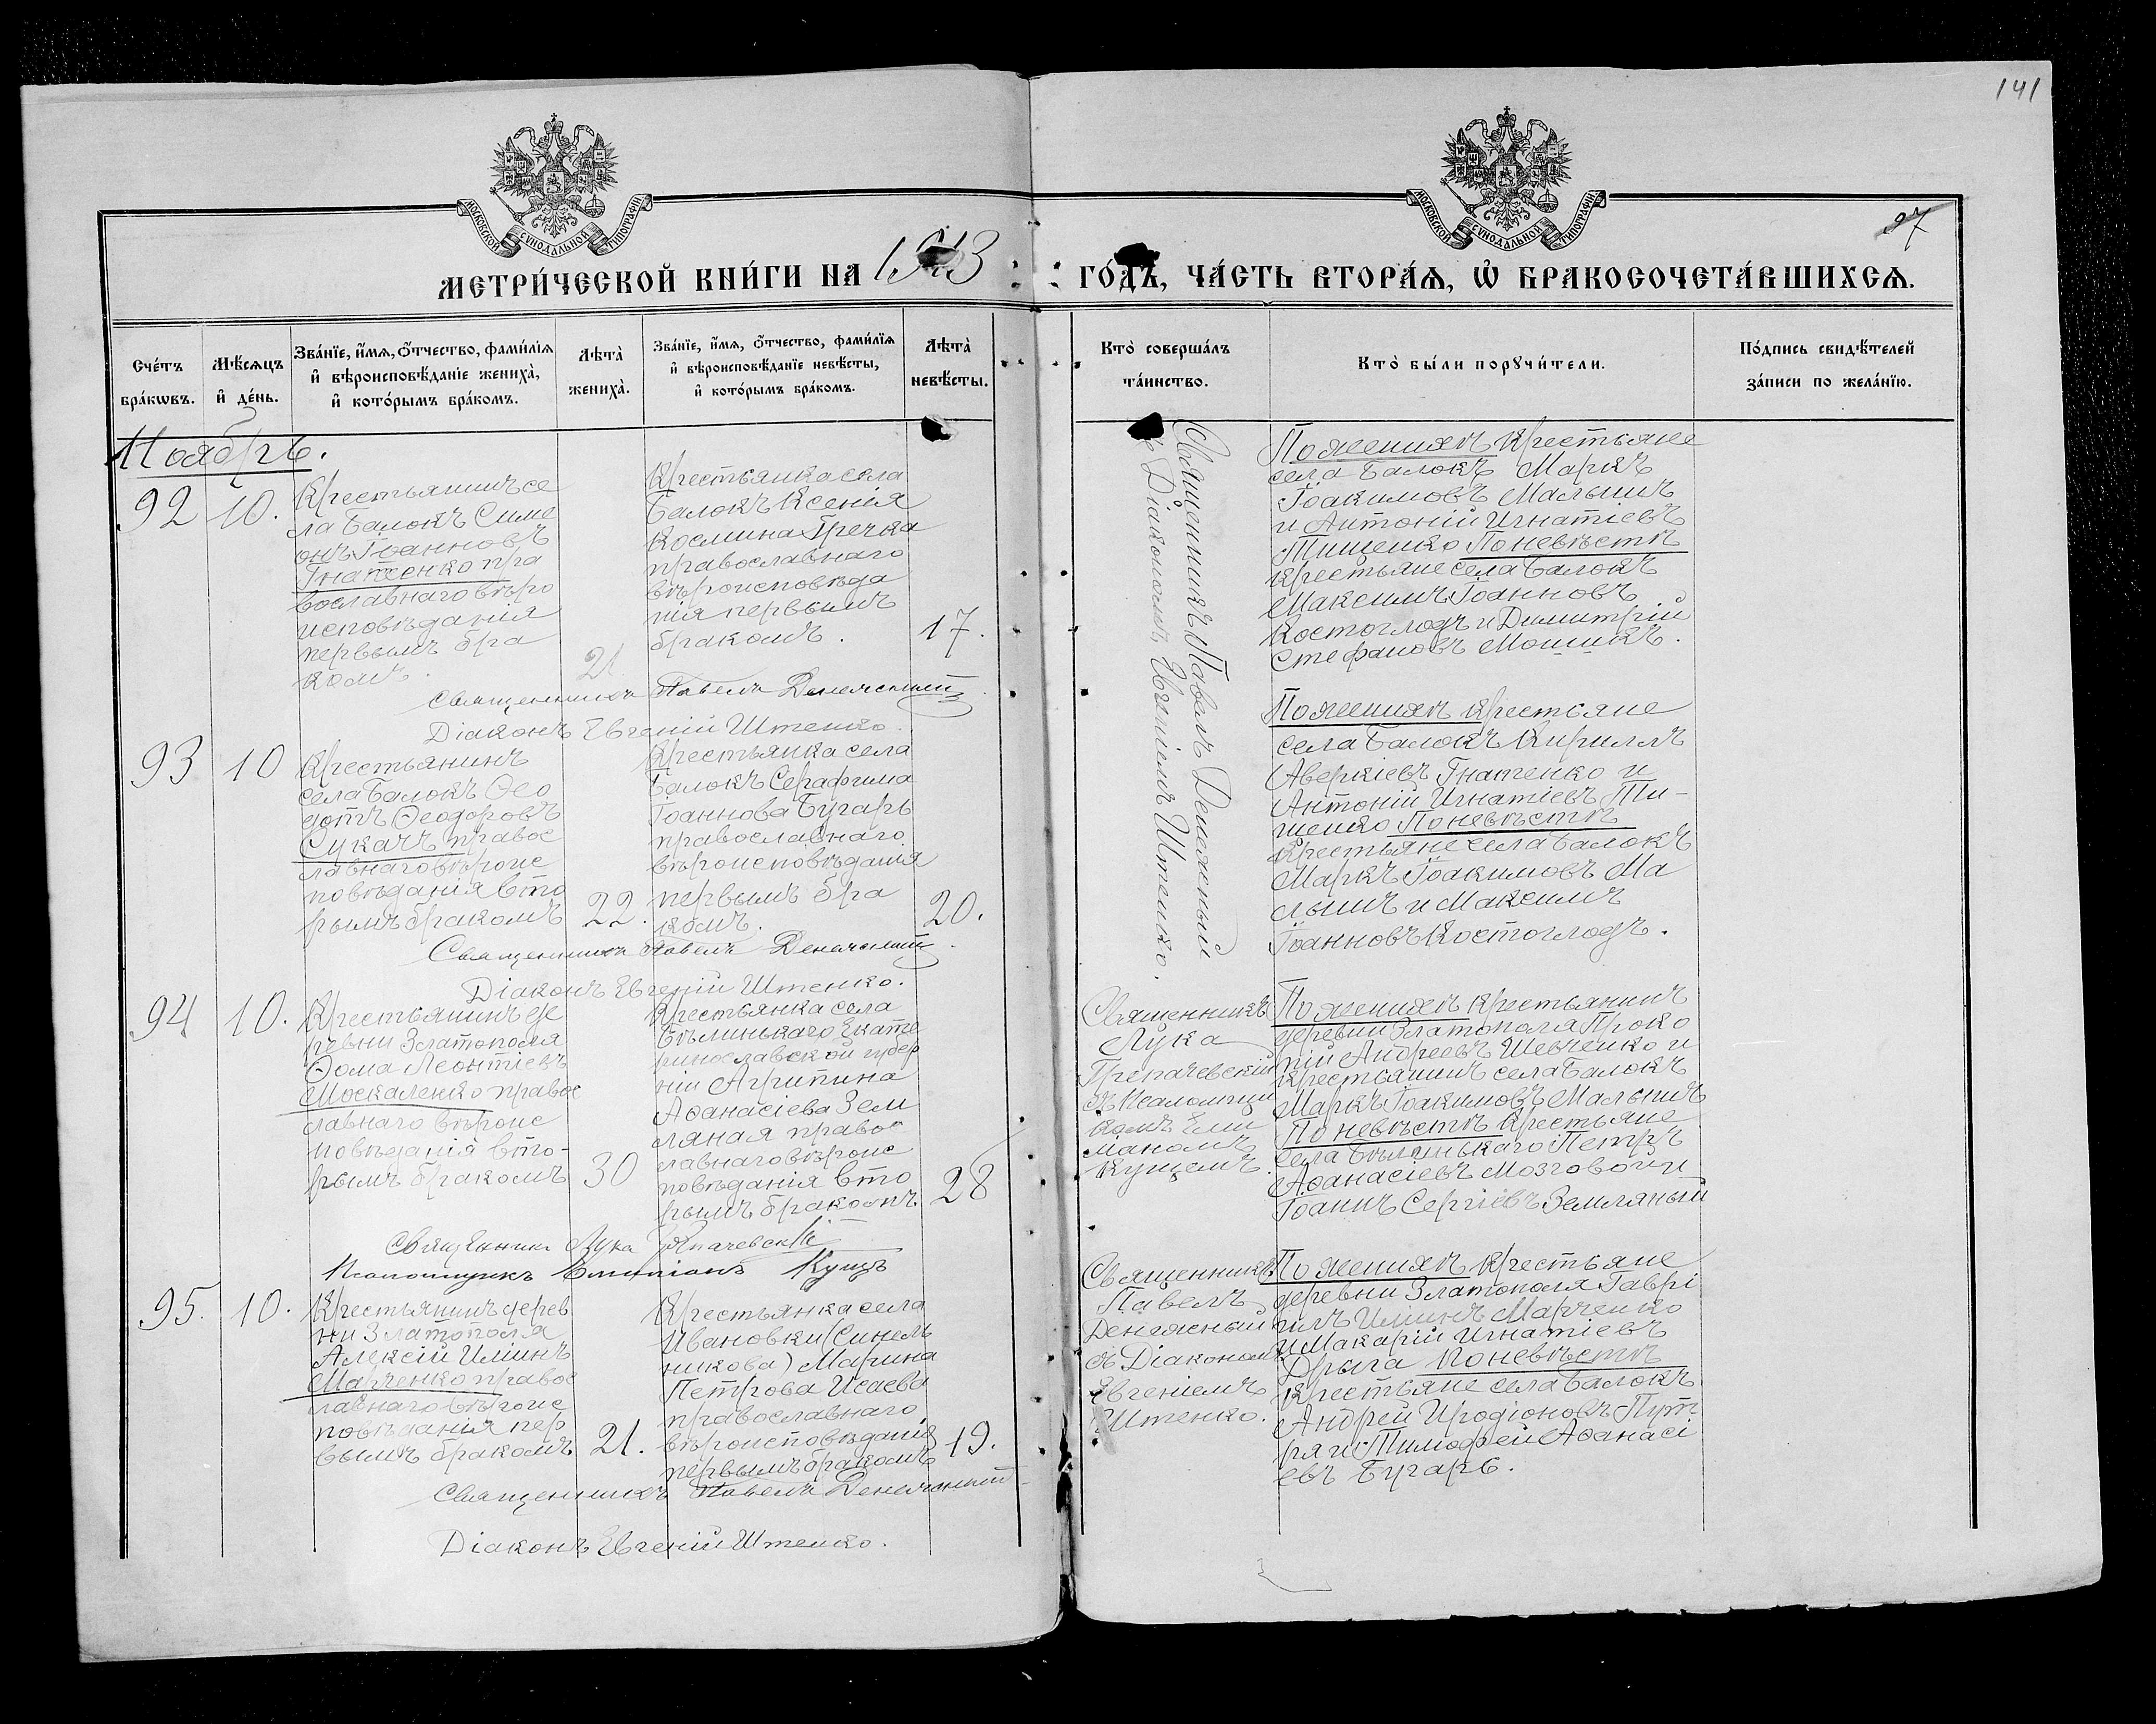 141
МОСКОВСКОЙ СѴНОДАЛЬНОЙ ТИПОГРАФІИ
МОСКОВСКОЙ СѴНОДАЛЬНОЙ ТИПОГРАФІИ
97
МЕТРИ́ЧЕСКОЙ КНИ́ГИ НА 1913 ГО́ДЪ, ЧА́СТЬ ВТОРА́Ѧ, Ѡ҆ БРАКОСОЧЕТА́ВШИХСѦ.
Сче́тъ
бра́кѡвъ.
Мѣ́сѧцъ
и҆ де́нь.
Зва́нїе, и҆́мѧ, ѻ҆́тчество, фами́лїѧ
и҆ вѣроисповѣ́данїе жениха̀,
и҆ кото́рымъ бра́комъ.
Лѣта̀
жениха̀.
Зва́нїе, и҆́мѧ, ѻ҆́тчество, фами́лїѧ
и҆ вѣроисповѣ́данїе невѣ́сты,
и҆ кото́рымъ бра́комъ.
Лѣта̀
невѣ́сты.
Кто̀ соверша́лъ
та́инство.
Кто̀ бы́ли порꙋчи́тели.
По́дпись свидѣ́телей
за́писи по жела́нїю.
Ноябрь.
92
10.
Крестьянинъ се
ла Балокъ Симе
онъ Іоанновъ
Гнатенко пра
вославнаго вѣро
исповѣданія
первымъ бра
комъ.
21
Крестьянка села
Балокъ Ксенія
Космина Гречка
православнаго
вѣроисповѣда
нія первымъ
бракомъ.
17.
Священникъ Павелъ Денежный
Діаконъ Евгеній Штенко.
Священникъ Павелъ Денежный
съ Діакономъ Евгеніемъ Штенко.
По женихѣ крестьяне
села Балокъ Маркъ
Іоакимовъ Малышъ
и Антоній Игнатіевъ
Тищенко По невѣстѣ
крестьяне села Балокъ
Максимъ Іоанновъ
Костоглодъ и Димитрій
Стефановъ Мошикъ.
93
10
Крестьянинъ
села Балокъ Ѳео
дотъ Ѳеодоровъ
Сукачъ правос
лавнаго вѣроис
повѣданія вто
рымъ бракомъ
22.
Крестьянка села
Балокъ Серафима
Іоаннова Бугарь
православнаго
вѣроисповѣданія
первымъ бра
комъ.
20.
Священникъ Павелъ Денежный
Діаконъ Евгеній Штенко.
По женихѣ крестьяне
села Балокъ Кириллъ
Аверкіевъ Гнатенко и
Антоній Игнатіевъ Ти-
щенко По невѣстѣ
крестьяне села Балокъ
Маркъ Іоакимовъ Ма
лышъ и Максимъ
Іоанновъ Костоглодъ.
94
10.
Крестьянинъ де
ревни Златополя
Ѳома Леонтіевъ
Москаленко правос
лавнаго вѣроис
повѣданія вто-
рымъ бракомъ
30
Крестьянка села
Бѣлинькаго Екате
ринославской губер
ніи Агрипина
Аѳанасіева Зем
ляная правос
лавнаго вѣроис
повѣданія вто
рымъ бракомъ.
28
Священникъ Лука
Псаломщикъ Емиліанъ Кущъ
Священникъ
Лука
съ Псаломщи
комъ Еми
ліаномъ
Кущемъ.
По женихѣ крестьянинъ
деревни Златополя Проко
пій Андреевъ Шевченко и
крестьянинъ села Балокъ
Маркъ Іоакимовъ Малышъ
По невѣстѣ крестьяне
села Бѣлинькаго Петръ
Аѳанасіевъ Мозговой и
Іоаннъ Сергіевъ Земляный
95.
10.
Крестьянинъ дерев
ни Златополя
Алексій Иліинъ
Марченко правос
лавнаго вѣроис
повѣданія пер
вымъ бракомъ
21.
Крестьянка села
Ивановки (Синель
никова) Марина
Петрова Исаева
православнаго
вѣроисповѣданія
первымъ бракомъ
19.
Священникъ Павелъ Денежный
Діаконъ Евгеній Штенко.
Священникъ
Павелъ
Денежный
съ Діакономъ
Евгеніемъ
Штенко.
По женихѣ крестьяне
деревни Златополя Гаврі
илъ Иліинъ Марченко
и Макарій Игнатіевъ
Дрыга по невѣстѣ
крестьяне села Балокъ
Андрей Иродіоновъ Пут-
ря и Тимофей Аѳанасі
евъ Бугарь.